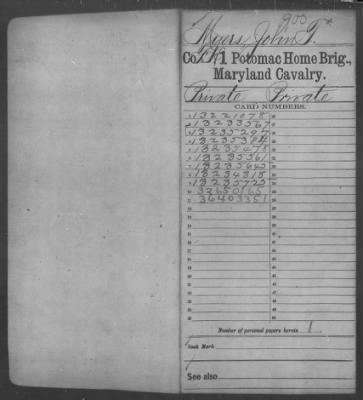 900
Myers, John T.
Co. F, 1 Potomac Home Brig.,
Maryland Cavalry.
Private Private
CARD NUMBERS.
13221078
13233567
13235294
13235384
13235478
13235561
13235645
13234318
13235725
32650165
36403351
Number of personal papers herein 1
Book Mark:
See also